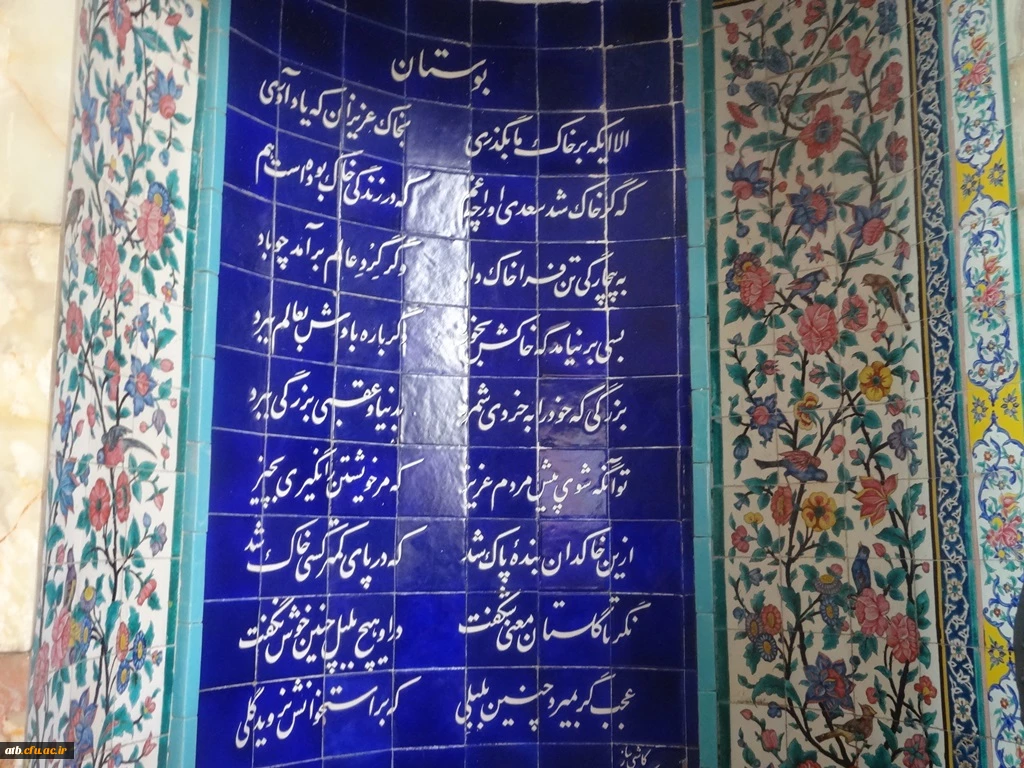 بوستان
الا ایکه بر خاک ما بگذری بخاک عزیزان که یاد آوری
که گر خاک شد سعدی او را چه غم که در زندگی خاک بوده است هم
به بیچارگی تن فرا خاک داد وگر گرد عالم بر آمد چو باد
بسی برنیامد که خاکش خورد اگر باره بادش بعالم برد
بزرگی که خود را به خردی شمرد بدنیا و عقبی بزرگی ببرد
تو آنگه شوی پیش مردم عزیز که مر خویشتن را نگیری بچیز
ازین خاکدان بندهٔ پاک شد که در پای کمتر کسی خاک شد
نگر تا گلستان معنی شکفت در او هیچ بلبل چنین خوش نگفت
عجب گر بمیرد چنین بلبلی که بر استخوانش نروید گلی
کاشی ساز
atb.cfu.ac.ir